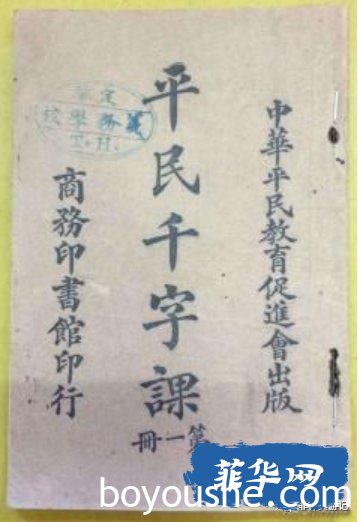 中華平民教育促進會出版
平民千字課
第一冊
商務印書館印行
義務學校
T.H.
菲华网
boyoushe.com